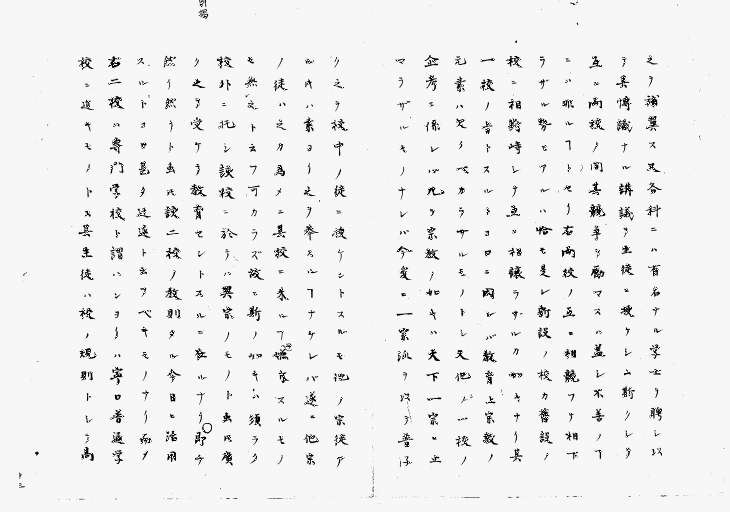 之ヲ補翼ス又各科ニハ有名ナル学士ヲ聘シ以
テ其博識ナル講議ヲ生徒ニ授ケシム斯クシテ
互ニ両校ノ間其競争ヲ励マスハ蓋シ不善ノ
ニハ非ル 右両校ノ互ニ相競フテ相下
ラザル勢ヒアルハ恰モ是レ新設ノ校カ舊設ノ
校ニ相対峙シテ互ニ相譲ラザルカ如キナリ其
一校ノ旨トスルトコロニ因レバ教育上宗教ノ
元素ハ欠クベカラザルモノトシ又他ノ一校ノ
企考ニ係レバ凡ソ宗教ノ如キハ天下一宗ニ止
マラザルモノナレバ今爰ニ一宗派ヲ以テ普
ク之ヲ校中ノ徒ニ後ケントスルモ他ノ宗徒ア
ルキハ素ヨリ之ヲ奉スル ナケレバ遂ニ他宗
ノ徒ハ之カ為メニ其校ニ来ル スルモノ
モ無シトモ云フ可カラズ故ニ斯ノ如キハ須ラク
校外ニ托シ該校ニ於テハ異宗ノモノト雖モ廣
ク之ヲ受ケテ教育セントスルニ在ルナリ即チ
然リ然ラト雖モ該二校ノ教則タル今日ニ活用
スルトコロ甚タ迂遠ト云フベキモノナリ而メ
右二校ハ専門学校ト謂ハンヨリハ寧ロ普通学
校ニ近キモノトス其生徒ハ校ノ規則トシテ高
十三